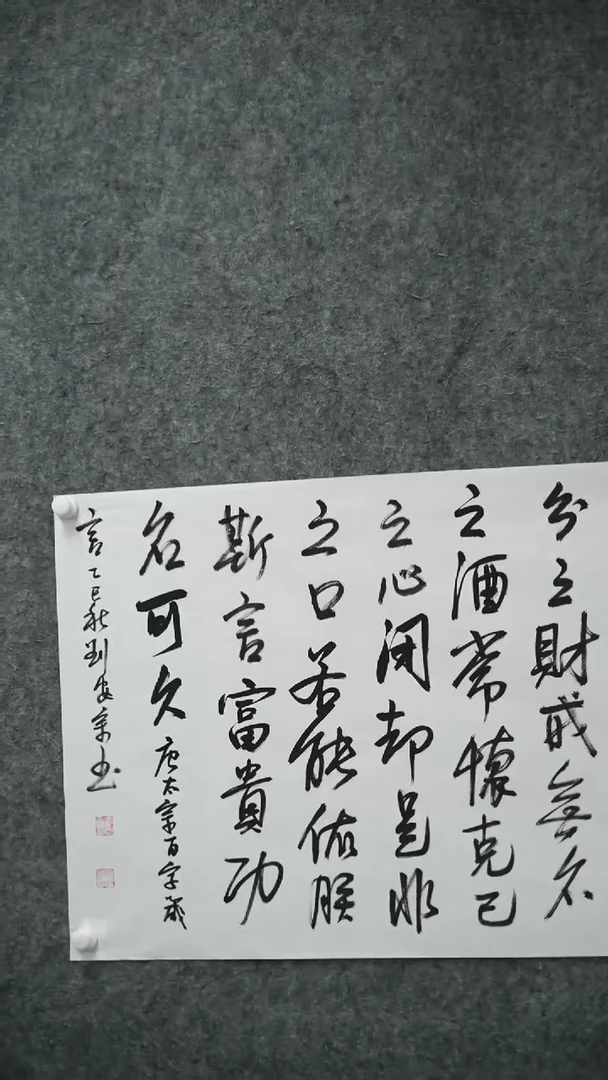 分之財戒無名
之酒常懷克己
之心閉却是非
之口若能依朕
斯言富貴功
名可久唐太宗百字箴
言乙巳秋劉安宗书